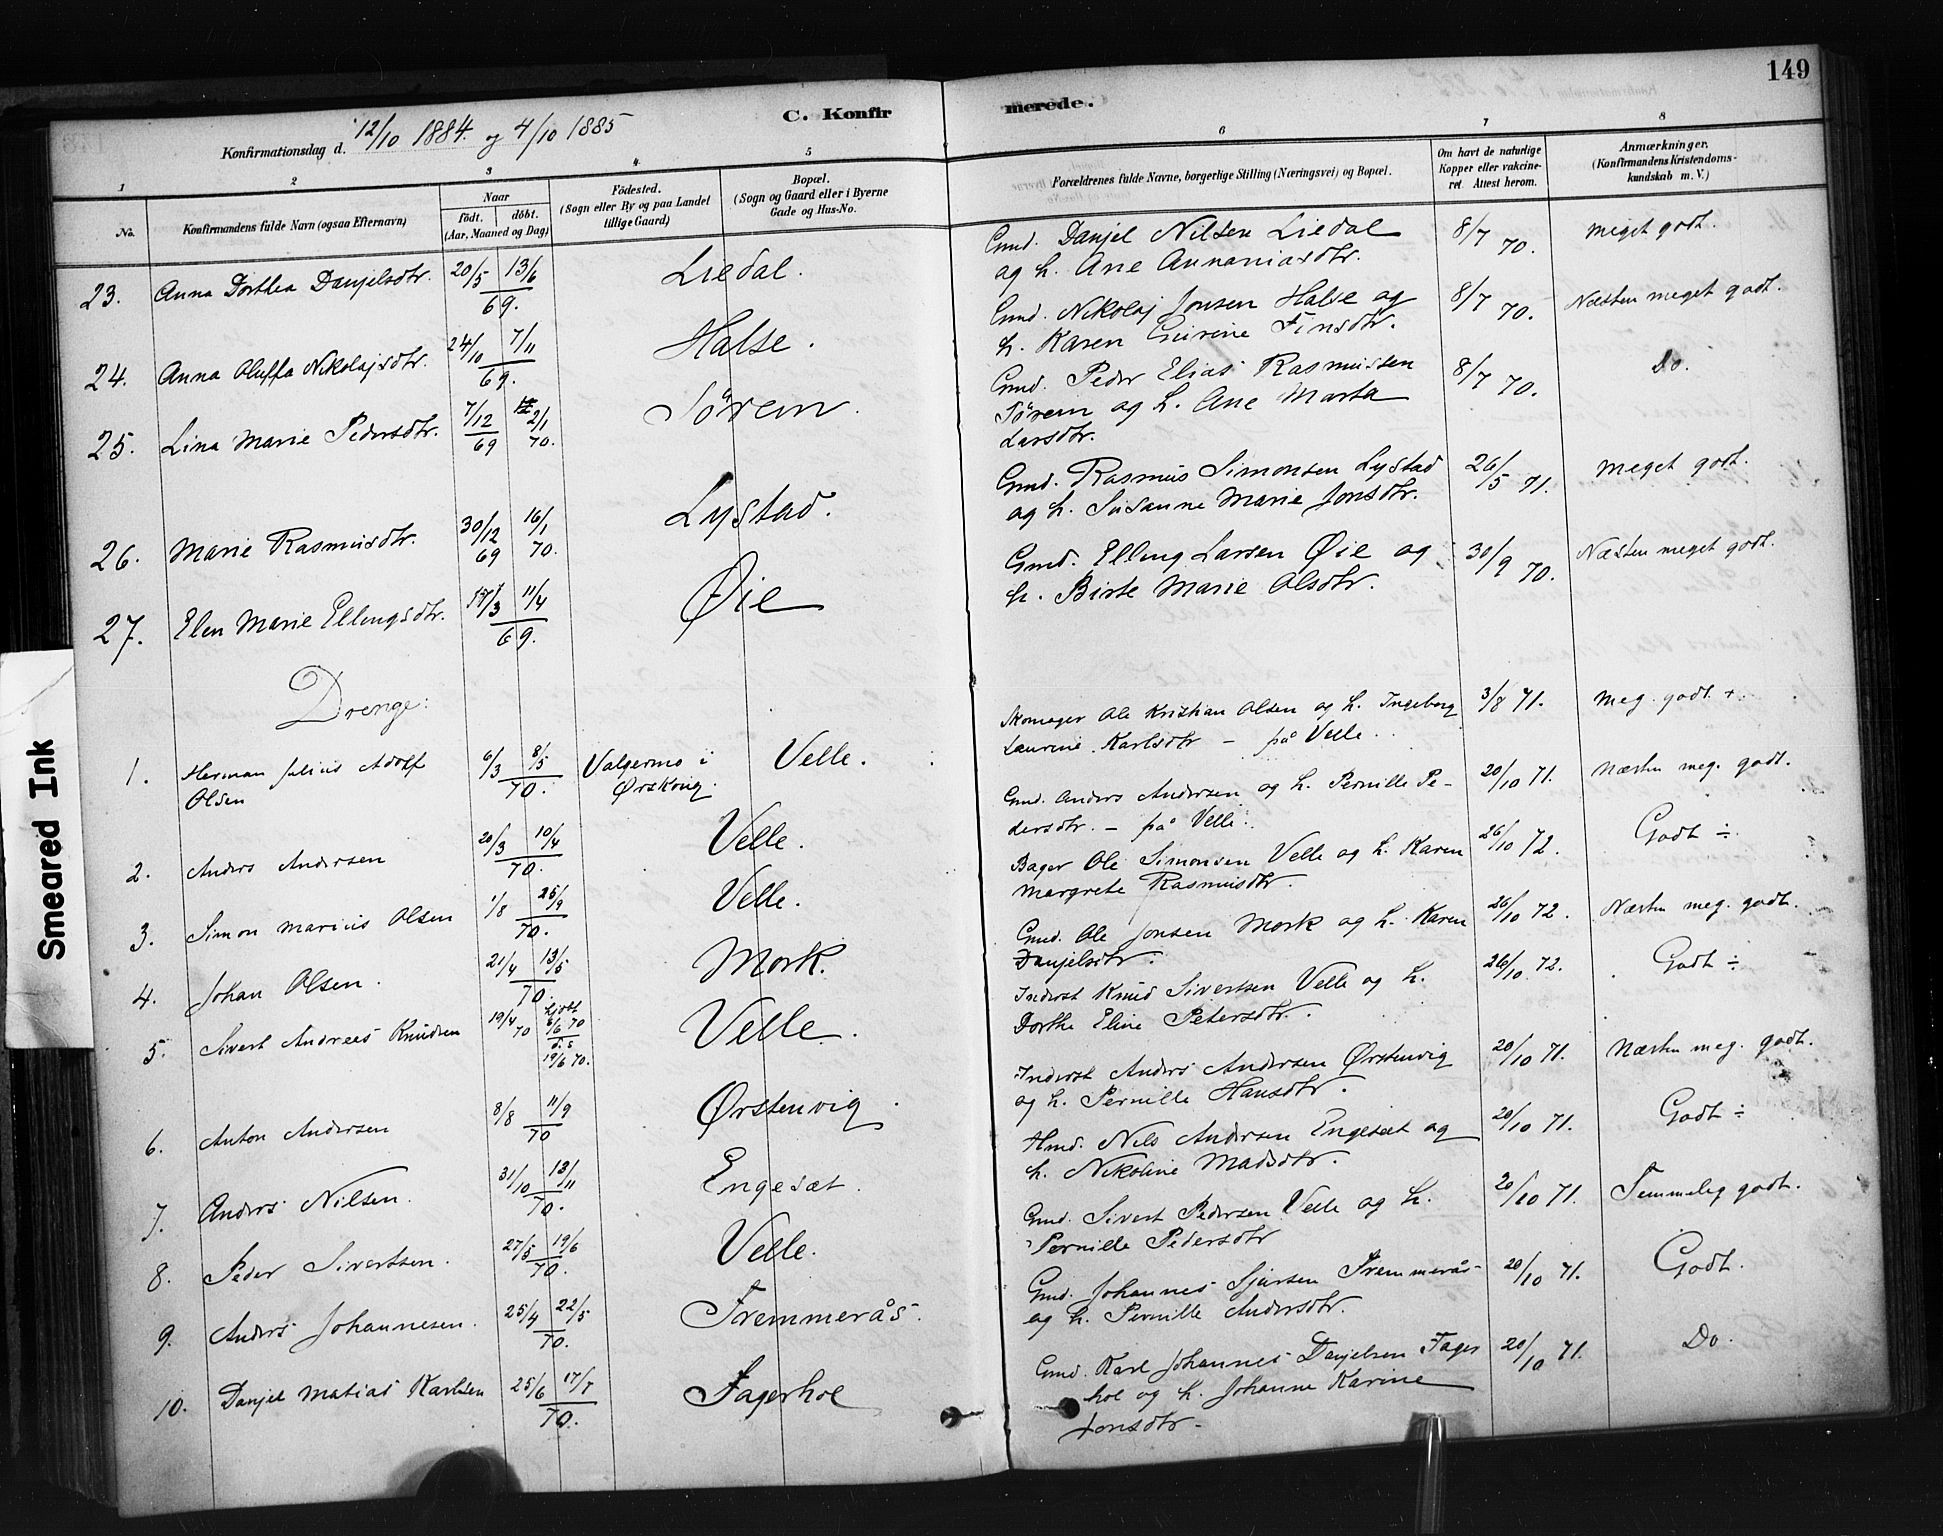 149
C. Konfirmerede.
Konfirmationsdag d. 12/10 1884 og 4/10 1885
1 2 3 4 5 6 7 8
No.
Konfirmandens fulde Navn (ogsaa Efternavn)
Naar
födt. döbt.
(Aar, Maaned og Dag)
Födested.
(Sogn eller By og paa Landet
tillige Gaard)
Bopæl.
(Sogn og Gaard eller i Byerne
Gade og Hus-No.
Forældrenes fulde Navne, borgerlige Stilling (Næringsvei) og Bopæl.
Om havt de naturlige
Kopper eller vakcine-
ret. Attest herom.
Anmærkninger.
(Konfirmandens Kristendoms-
kundskab m. V.)
23. Anna Dorthea Danjelsdtr. 20/5 13/6 69. Liedal.
Gmd. Danjel Nilsen Liedal
og h. Ane Annaniasdtr.
8/7 70. meget godt.
24. Anna Oluffa Nikolajsdtr. 24/10 7/11 69. Halse.
Gmd. Nikolaj Jonsen Halse og
h. Karen Gurine Finsdtr.
8/7 70. Næsten meget godt.
25. Lina Marie Pedersdtr. 7/12 69 2/1 70. Sörem.
Gmd. Peder Elias Rasmussen
Sörem og h. Ane Marta
Larsdtr.
8/7 70. Do.
26. Marie Rasmusdtr. 30/12 69 16/1 70. Lystad.
Gmd. Rasmus Simonsen Lystad
og h. Susanne Marie Jonsdtr.
26/5 71. Meget godt.
27. Elen Marie Ellingsdtr. /3 11/4 69. Øie
Gmd. Elling Larsen Øie og
h. Birte Marie Olsdtr.
30/9 70. Næsten meget godt.
Drenge:
1. Herman Julius Adolf
Olsen
6/3 8/5 70. Valgermo i
Ørskoug. Velle.
Skomager Ole Kristian Olsen og h. Ingeborg
Laurine Karlsdtr – på Velle.
3/8 71. Meg. godt +.
2. Anders Andersen 20/3 10/4 70. Velle.
Gmd. Anders Andersen og h. Pernille Pe-
dersdtr. – på Velle.
20/10 71. Næsten meg. godt.
3. Simon Marius Olsen 1/8 25/9 70. Velle.
Bager Ole Simonsen Velle og h. Karen
Margrete Rasmusdtr.
26/10 72. Godt ÷.
4. Johan Olsen. 21/4 13/5 70. Mork.
Gmd. Ole Jonsen Mork og h. Karen
Danjelsdtr.
26/10 72. Næsten meg. godt.
5. Sivert Andreas Knudsen 19/4 70 6/6 70 19/6 70. Velle.
Inderst Knud Sivertsen Velle og h.
Dorthe Eline Petersdtr.
26/10 72. Godt ÷
6. Anton Andersen 8/8 11/9 70 Ørstenvig
Inderst Anders Andersen Ørstenvig
og h. Pernille Hansdtr.
20/10 71. Næsten meg. godt.
7. Anders Nilsen. 31/10 13/11 70. Engesæt.
Hmd. Nils Andersen Engesæt og
h. Nikoline Madsdtr.
20/10 71. Godt ÷
8. Peder Sivertsen. 27/5 19/6 70. Velle.
Gmd. Sivert Pedersen Velle og h.
Pernille Pedersdtr
20/10 71. Temmelig godt.
9. Anders Johannesen. 25/4 22/5 70. Fremmerås.
Gmd. Johannes Sjursen Fremmerås
og h. Pernille Andersdtr.
20/10 71. Godt.
10. Danjel Matias Karlsen 25/6 17/7 70. Fagerhol
Gmd. Karl Johannes Danjelsen Fager
hol og h. Johanne Karine
Jonsdtr.
20/10 71. Do.
Smeared Ink